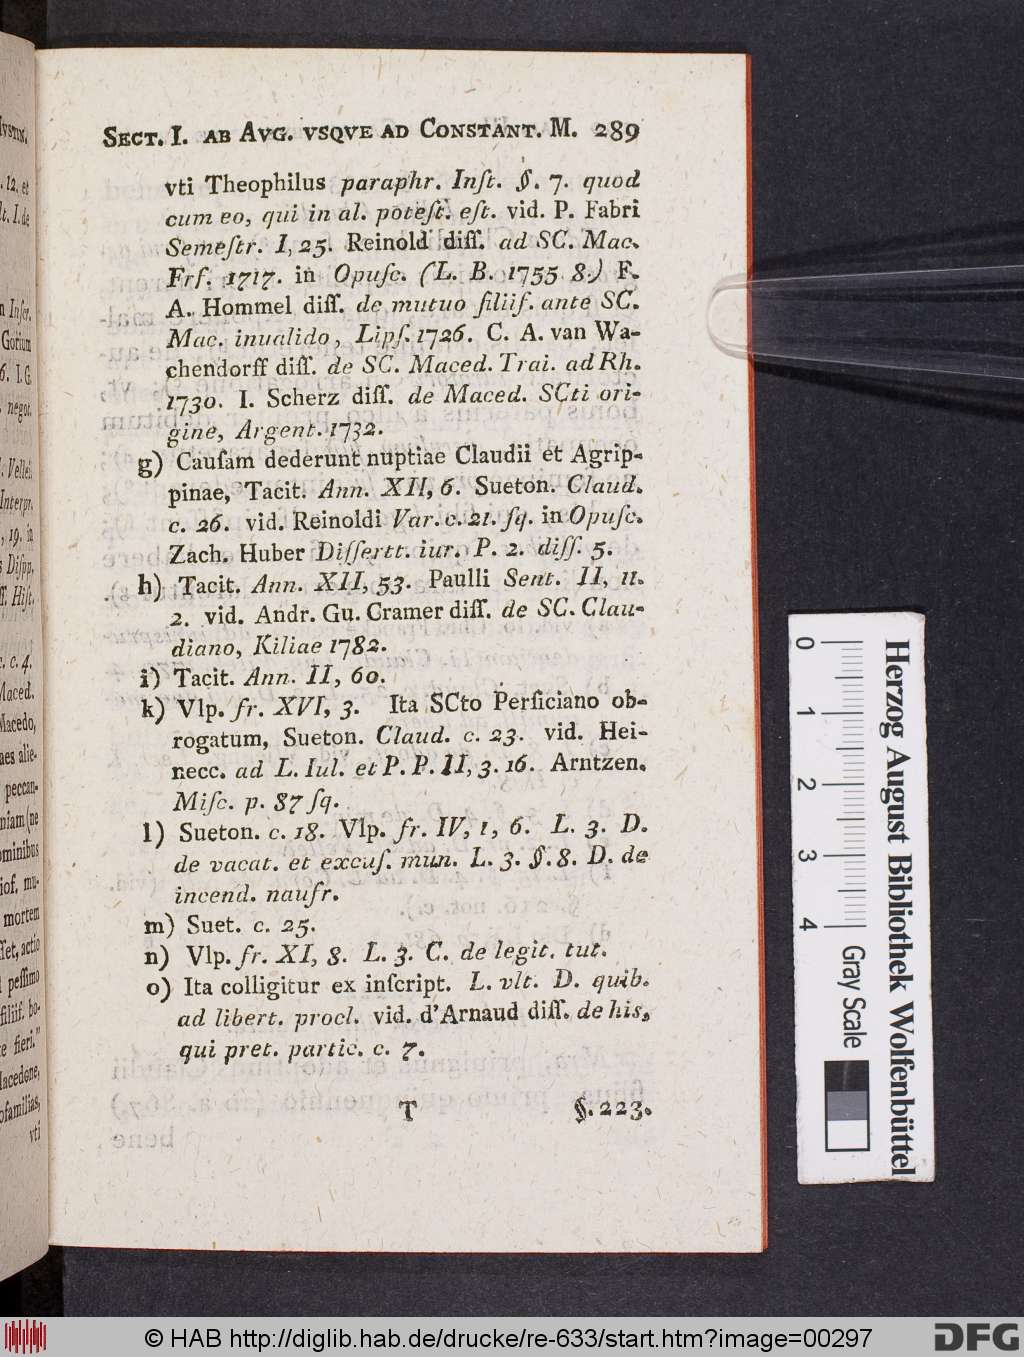 SECT. I. AB AVG. VSQVE AD CONSTANT. M. 289
vti Theophilus paraphr. Inſt. §. 7. quod
cum eo, qui in al. poteſt. eſt. vid. P. Fabri
Semeſtr. I, 25. Reinold diſſ. ad SC. Mac.
Frf. 1717. in Opuſc. (L. B. 1755 8.) F.
A. Hommel diſſ. de mutuo filiif. ante SC.
Mac. inualido, Lipſ. 1726. C. A. van Wa-
chendorff diſſ. de SC. Maced. Trai. ad Rh.
1730. I. Scherz diſſ. de Maced. SCti ori-
gine, Argent. 1732.
g) Cauſam dederunt nuptiae Claudii et Agrip-
pinae, Tacit. Ann. XII, 6. Sueton. Claud.
c. 26. vid. Reinoldi Var. c. 21. ſq. in Opuſc.
Zach. Huber Diſſertt. iur. P. 2. diſſ. 5.
h) Tacit. Ann. XII, 53. Paulli Sent. II, 11.
2. vid. Andr. Gu. Cramer diſſ. de SC. Clau-
diano, Kiliae 1782.
i) Tacit. Ann. II, 60.
k) Vlp. fr. XVI, 3. Ita SCto Perſiciano ob-
rogatum, Sueton. Claud. c. 23. vid. Hei-
necc. ad L. Iul. et P. P. II, 3. 16. Arntzen.
Miſc. p. 87 ſq.
l) Sueton. c. 18. Vlp. fr. IV, 1, 6. L. 3. D.
de vacat. et excuſ. mun. L. 3. §. 8. D. de
incend. naufr.
m) Suet. c. 25.
n) Vlp. fr. XI, 8. L. 3. C. de legit. tut.
o) Ita colligitur ex inſcript. L. vlt. D. quib.
ad libert. procl. vid. d'Arnaud diſſ. de his,
qui pret. partic. c. 7.
T §. 223.
0 1 2 3 4
Herzog August Bibliothek Wolfenbüttel
Gray Scale
© HAB http://diglib.hab.de/drucke/re-633/start.htm?image=00297
DFG